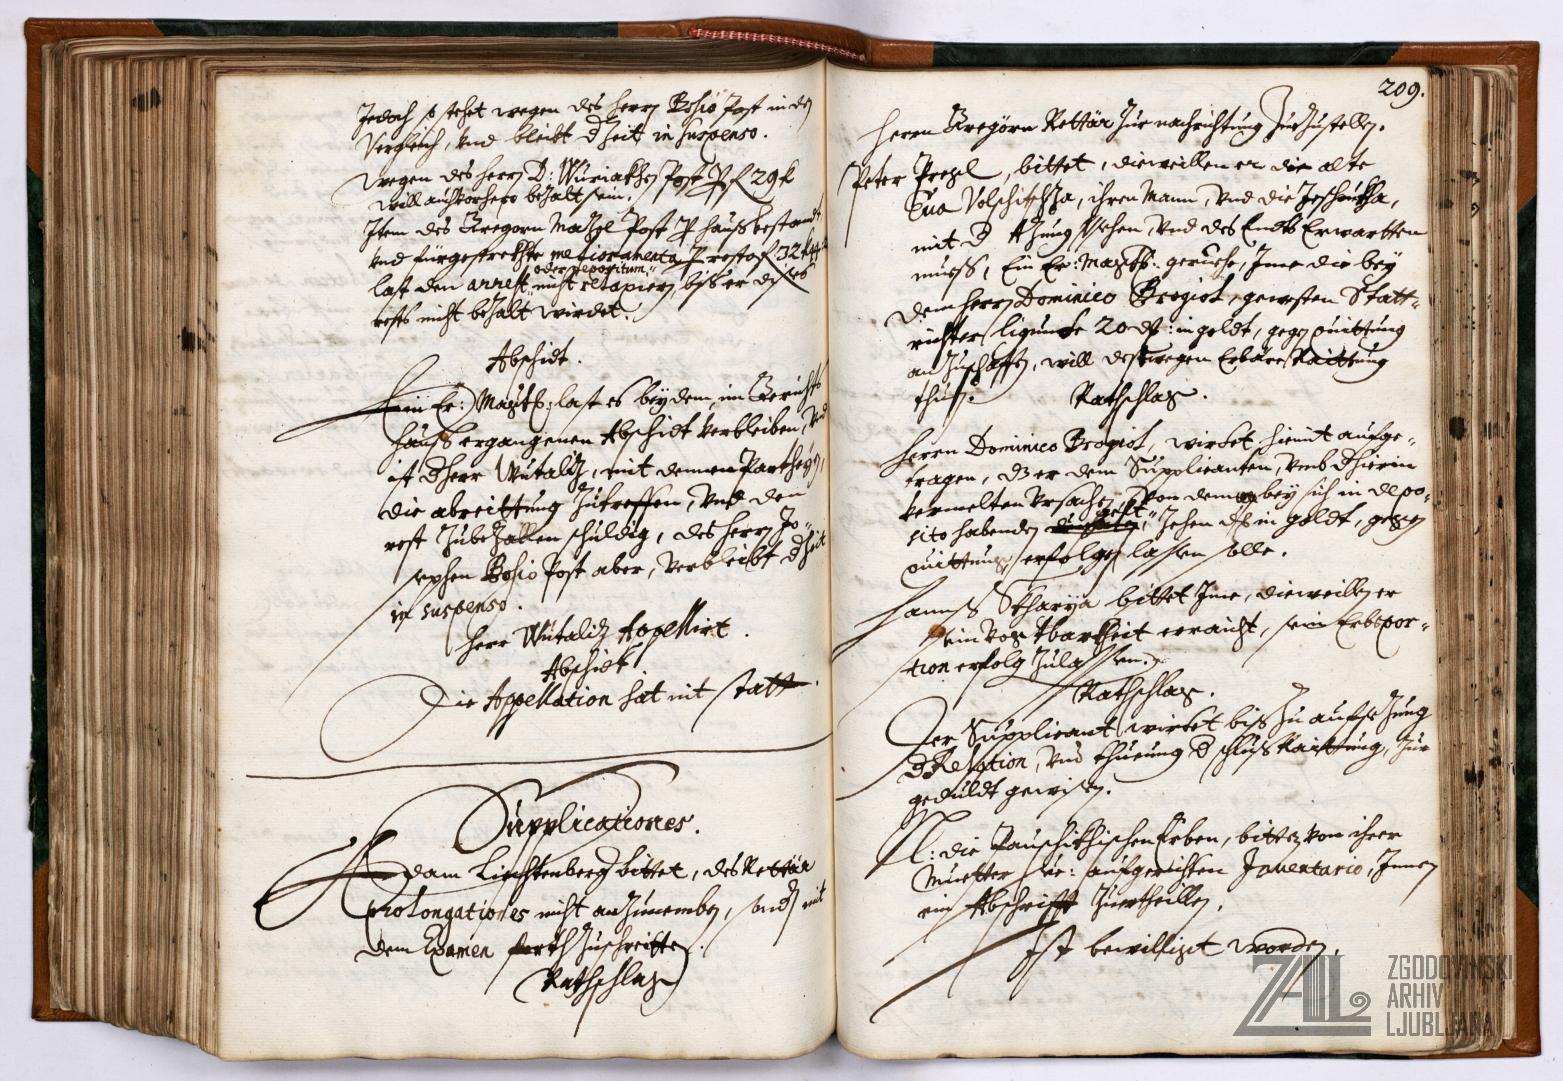 Jedoch so stehet wegen des Herrn Bosio Post in dem
Vergleich, vnd bleibt dizeit in suspenso.
wegen des Herrn D: Wuriakhen Post Pr f 29 k
will auch vorhero behalt sein.
Item des Gregorn Post Pr haußbestandt
vnd fürgestrekhte melioramenta Pr resto f 32 k
oder depositum
last den arrest nicht relaxiern, biß er dises
rests nicht behalt wirdet.
Abschidt.
Ein Er: Magist: last es bey dem, im Gerichts
hauß ergangenen Abschidt verbleiben, vnd
ist d Herr Wutaliz, mit denen Partheyen,
die abreittung zutreffen, vnd den
rest zubezallen schuldig, des Herrn Jo-
sephen Bosio Post aber, verbleibt dizeit
in suspenso.
Herr Wutaliz Appellirt.
Abschidt.
Die Appellation hat nit statt.
Supplicationes.
Adam Liechtenberg bittet, des Rettär
prolongationes nicht anzunemben, sondern mit
dem Examen forth zuschreitten.
Rathschlag
209.
Herrn Gregorn Rettär zur nachrichtung zuzustellen.
Peter Prezl, bittet, dieweillen er die alte
Eua Volschitschza, ihren Mann, vnd die
mit d vnd des Endts Erwartten
muess, Ein Er: Magist: geruche, Jme die bey
dem Herrn Dominico Brogiot, gewesten Statt-
richter ligunde 20 in goldt, gegen quittung
an zuschaffen, will destwegen Erbäre Raittung
thun.
Rathschlag.
Herrn Dominico Brogiot, wirdet hiemit aufge-
tragen, dz er dem Supplicanten, vmb d hierin
vermelten vrsachen, von dem bey sich in depo-
sito habenden gelt, zehen in goldt, gegen
quittung erfolgen lassen solle.
Hannß Skarya bittet Jme, dieweillen er
sein Vogtbarkheit erraicht, sein Erbspor-
tion erfolg zulassen.
Rathschlag.
Der Supplicant wirdet biß zu aufsezung
d Relation, vnd thueung d schluß Raittung, zur
geduldt gewisen.
N: die Erben, bitten von ihrer
Muetter aufgerichten Inuentario, Jnnen
ein Abschrifft zuertheillen.
Ist bewilliget worden.
ZAL
ZGODOVINSKI
ARHIV
LJUBLJANA